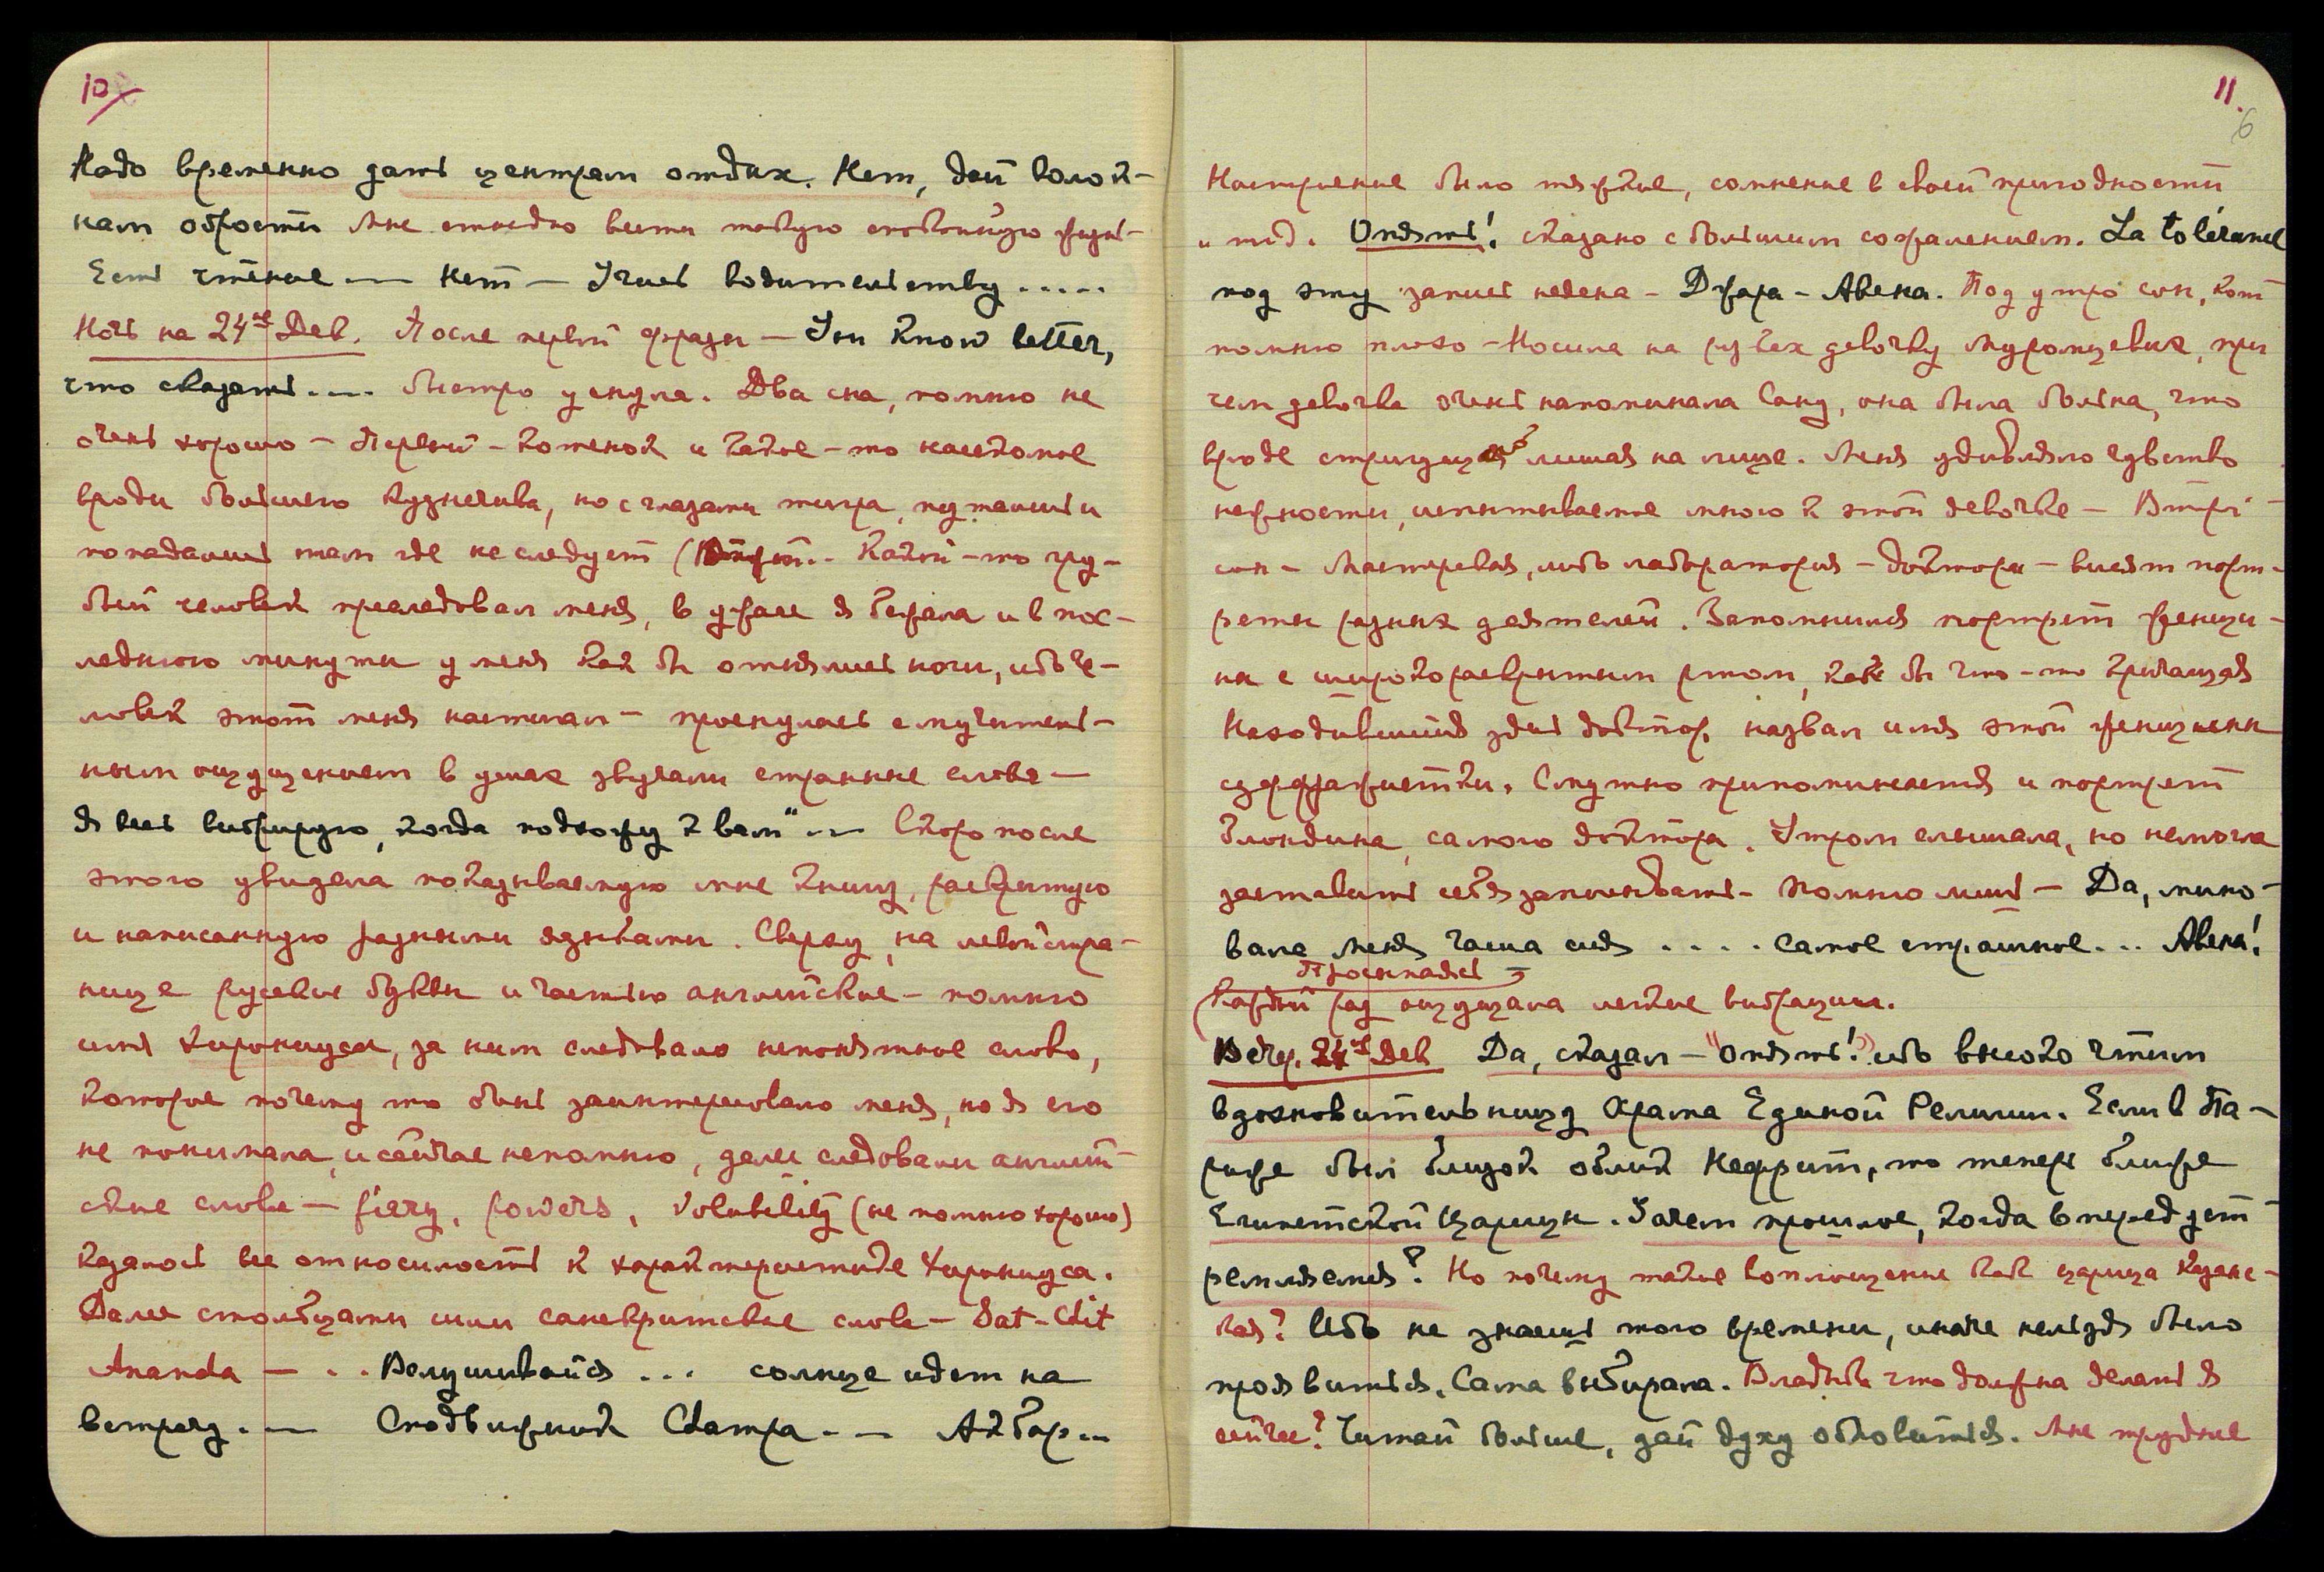 10
Надо временно дать центрам отдых. Нет, дай волок-
нам обрости Мне стыдно вести такую спокойную жизнь-
Есть чтение — нет — Учись водительству .....
Ночь на 24ое Дек. После первой фразы — You know better,
что сказать.... быстро уснула. Два сна, помню не
очень хорошо — Первый - котенок и какое-то насекомое
вроди большого кузнечика, но с глазами тигра, путались и
попадались там где не следует ( Какой-то гру-
бый человек преследовал меня, в ужасе я бежала и в пос-
леднюю минуту у меня как бы отнялись ноги, ибо че-
ловек этот меня настигал — проснулась с мучитель-
ным ощущением в ушах звучали странные слова —
Я весь вибрирую, когда подхожу к вам" — Скоро после
этого увидела показываемую мне книгу, раскрытую
и написанную разными языками. Сверху, на левой стра-
нице русские буквы и частью английские - помню
имя Хирониуса, за ним следовало непонятное слово,
которое почему то очень заинтересовало меня, но я его
не понимала, и сейчас не помню, далее следовали англий-
ские слова — fiery, powers, volubility (не помню хорошо)
казалось все относилость к характеристике Хирониуса.
Далее столбцами шли санскритские слова - Sat-Chit
Ananda — .. Вслушивайся ... солнце идет на
встречу. — Сподвижник Christa .— Акбар...
11.
6
Настроение было тяжкое, сомнение в своей пригодности
и т.д. Опять! сказано с большим сожалением. La tolérance
под эту запись недена - Джара - Авена. Под утро сон, кот
помню плохо - Носила на руках девочку Муромцевых, при
чем девочка очень напоминала Сану, она была больна, что
вроде стригущего лишая на лице. Меня удивляло чувство
нежности, испытываемое мною к этой девочке — Втор.
сон - Мастерская, либо лаборатория - доктора - висят порт-
реты разных деятелей. Запомнился портрет женщи-
ны с широкораскрытым ртом, как бы что-то кричащая
Находившийся здесь доктор, назвал имя этой женщины
суффражистки. Смутно припоминается и портрет
блондина, самого доктора. Утром слышала, но не могла
заставить себя записывать - Помню лишь — Да, мино-
вала меня чаша сия .... самое страшное... Авена!
Просыпаясь
Каждый раз ощущала легкие вибрации.
Веч. 24го Дек Да, сказал — "Опять!" ибо высоко чтим
вдохновительницу Храма Единой Религии. Если в Па-
риже был близок облик Неффрит, то теперь ближе
Египетской Царицы. Зачем прошлое, когда вперед уст
ремляемся? Но почему такое воплощение как царица Казанс-
кая? Ибо не знаешь того времени, иначе нельзя было
проявиться. Сама выбирала. Владыка что должна делать я
сейчас? Читай больше, дай духу обновиться. Мне труднее